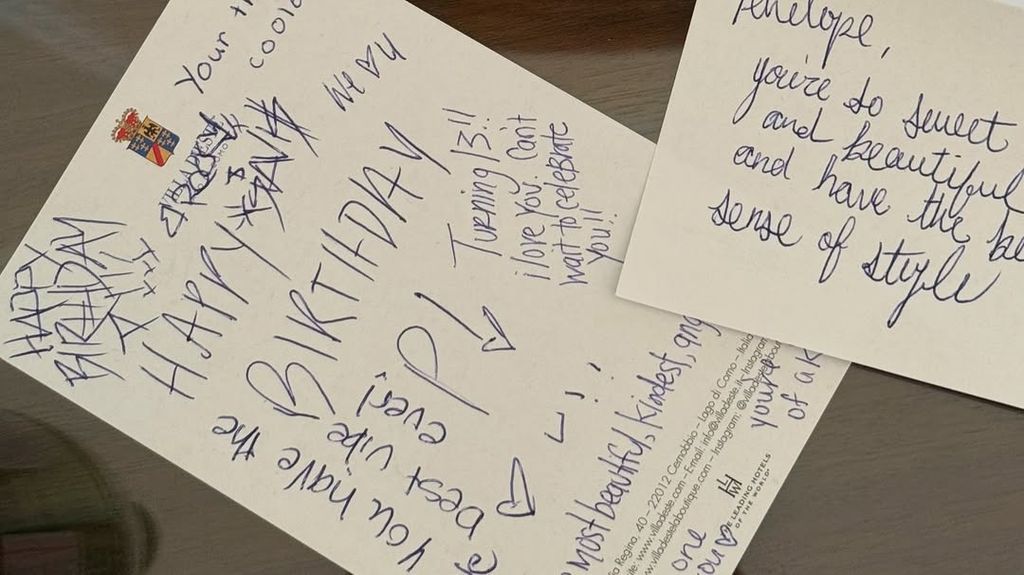 Your th
coole
We ♡ U
HAPPY
BIRTHDAY
P!
HAPPY
Turning 13!!
i love you. Can't
wait to celebrate
you!!
you have the
best vibe
ever!
most beautiful, kindest, and
you're
of a k
one
you ♡
a Regina, 40 – 22012 Cernobbio – Lago di Como – Italia
www.villadeste.com – Email: info@villadeste.it – Instagram
www.villadestelaboutique.com – Instagram: @villadeste
E LEADING HOTELS
OF THE WORLD
Penelope,
you're so sweet
and beautiful
and have the be
sense of style